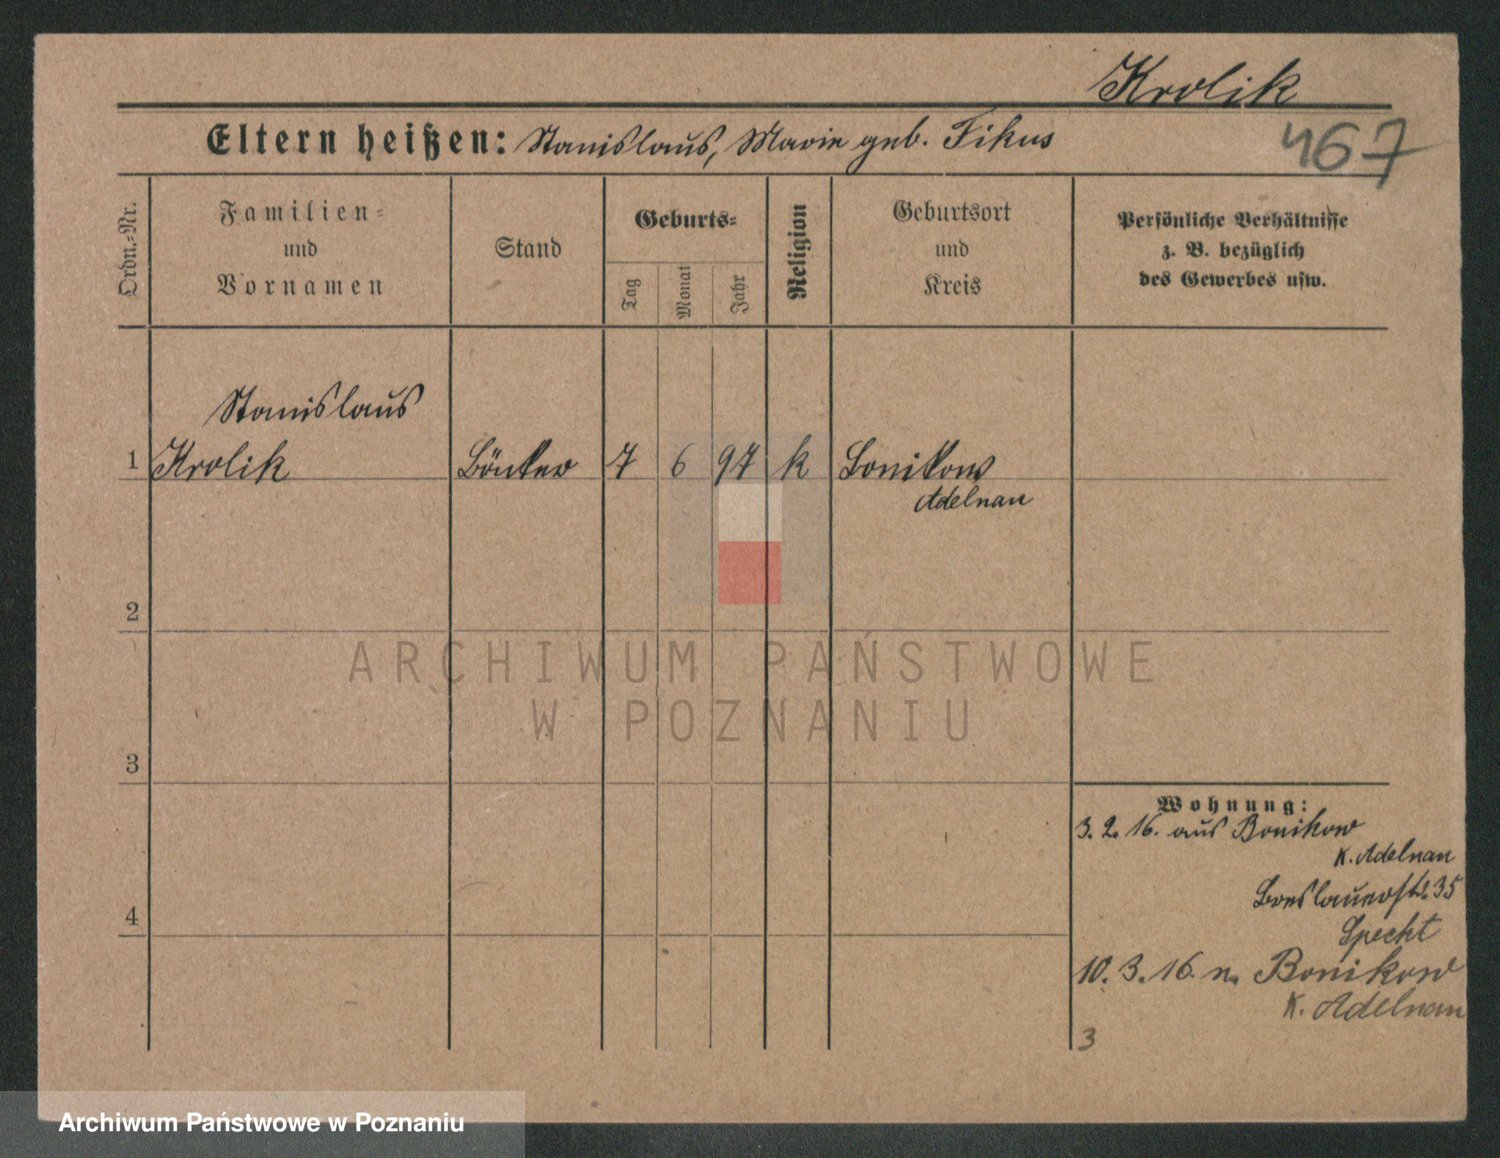 Krolik
467
Eltern heißen: Stanislaus, Marie geb. Fikus
Ordn.-Nr.
Familien-
und
Vornamen
Stand
Geburts-
Tag
Monat
Jahr
Religion
Geburtsort
und
Kreis
Persönliche Verhältnisse
z. B. bezüglich
des Gewerbes usw.
Stanislaus
1 Krolik 7 6 97 k Bonikow
Adelnau
2
3
4
Wohnung:
3. 2. 16. aus Bonikow
K. Adelnau
Breslauerstr. 35
Specht
10. 3. 16. n. Bonikow
K. Adelnau
3
ARCHIWUM PAŃSTWOWE
W POZNANIU
Archiwum Państwowe w Poznaniu